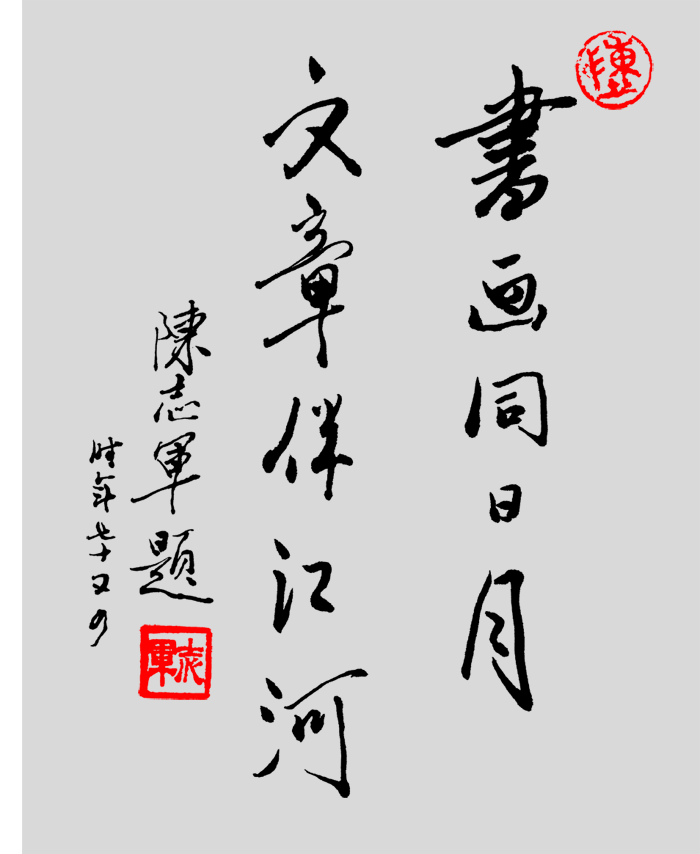 書画同日月
文章伴江河
陳志軍題
志軍
时年七十又